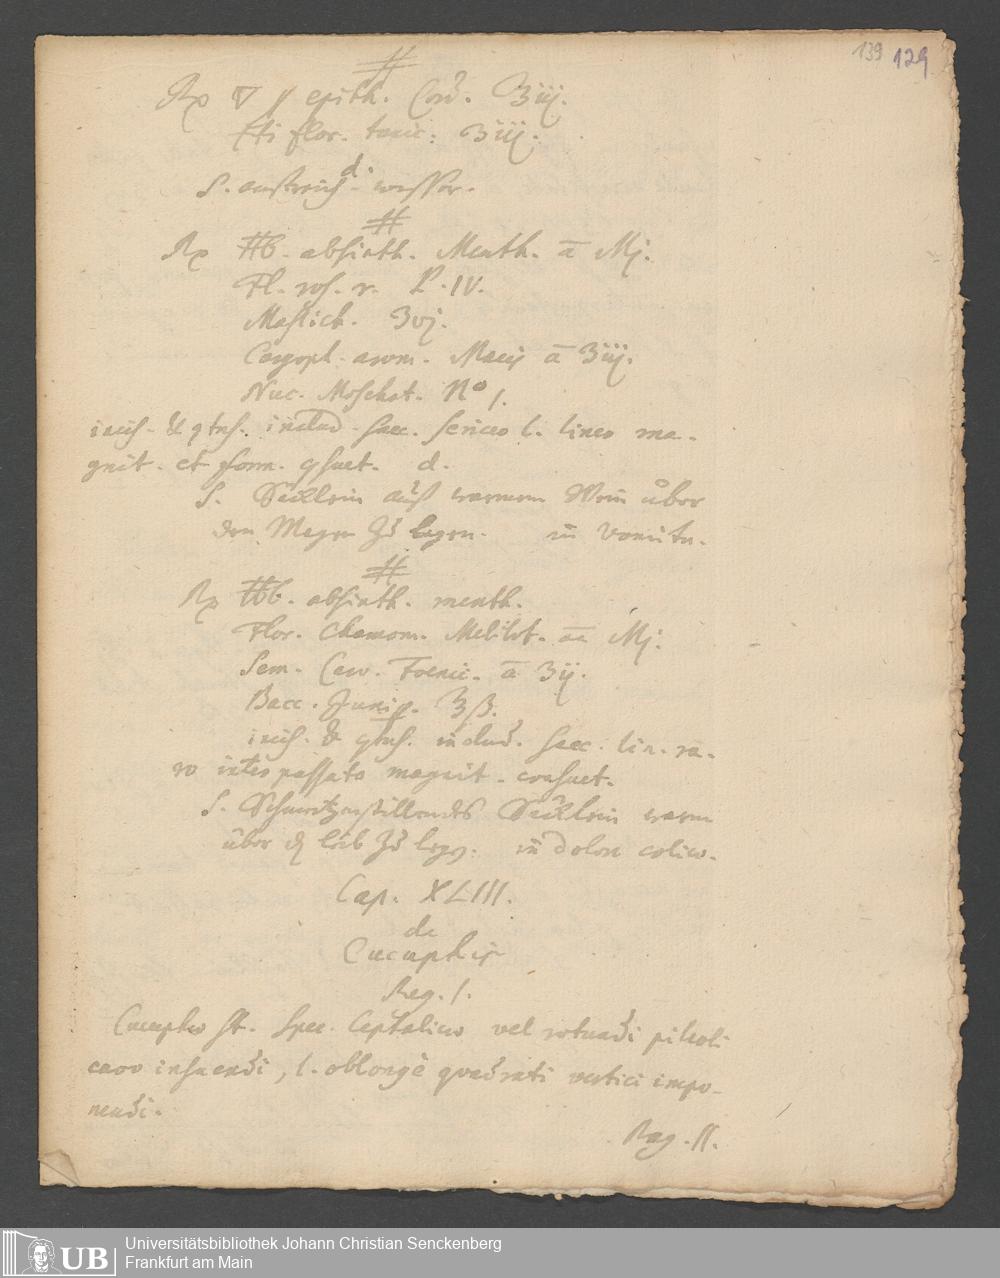 139 129
#
Rp ▽ epith. Cord. ℥iij.
flor. tunic: ʒiij.
d.
S. anstreich-wasser.
#
Rp Hb. absinth. Menth. a̅ Mj.
Fl. ros. r. P. IV.
Mastich. ʒvj.
Caryoph. arom. Macis a̅ ʒiij.
Nuc. Moschat. No 1.
incis. & qtus. includ. sacc. sericeo l. lineo ma-
gnit. et form. qsuet. d.
S. Säcklein auß warmem Wein über
den Magen zu legen. in Vomitu.
#
Rp Hb. absinth. menth.
Flor. Chamom. Melilot. aa Mj.
Sem. Carv. Foenic. a̅ ʒij.
Bacc. Junip. ℥ß.
incis. & qtus. includ. sacc. lin. ra-
ro interpassato magnit. consuet.
S. Schmertzenstillendes Säcklein warm
über d leib zu legen. in dolore colico.
Cap. XLIII.
de
Cucuphis
Reg. 1.
Cucupha st. spec. Cephalico vel rotundi pileoli
cavo insuendi, l. oblonge quadrati vertici impo-
nendi.
Reg. II.
UB Universitätsbibliothek Johann Christian Senckenberg
Frankfurt am Main